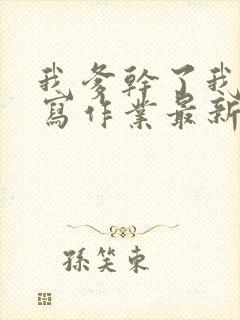 我爹幹了我
寫作業最新
孫笑東